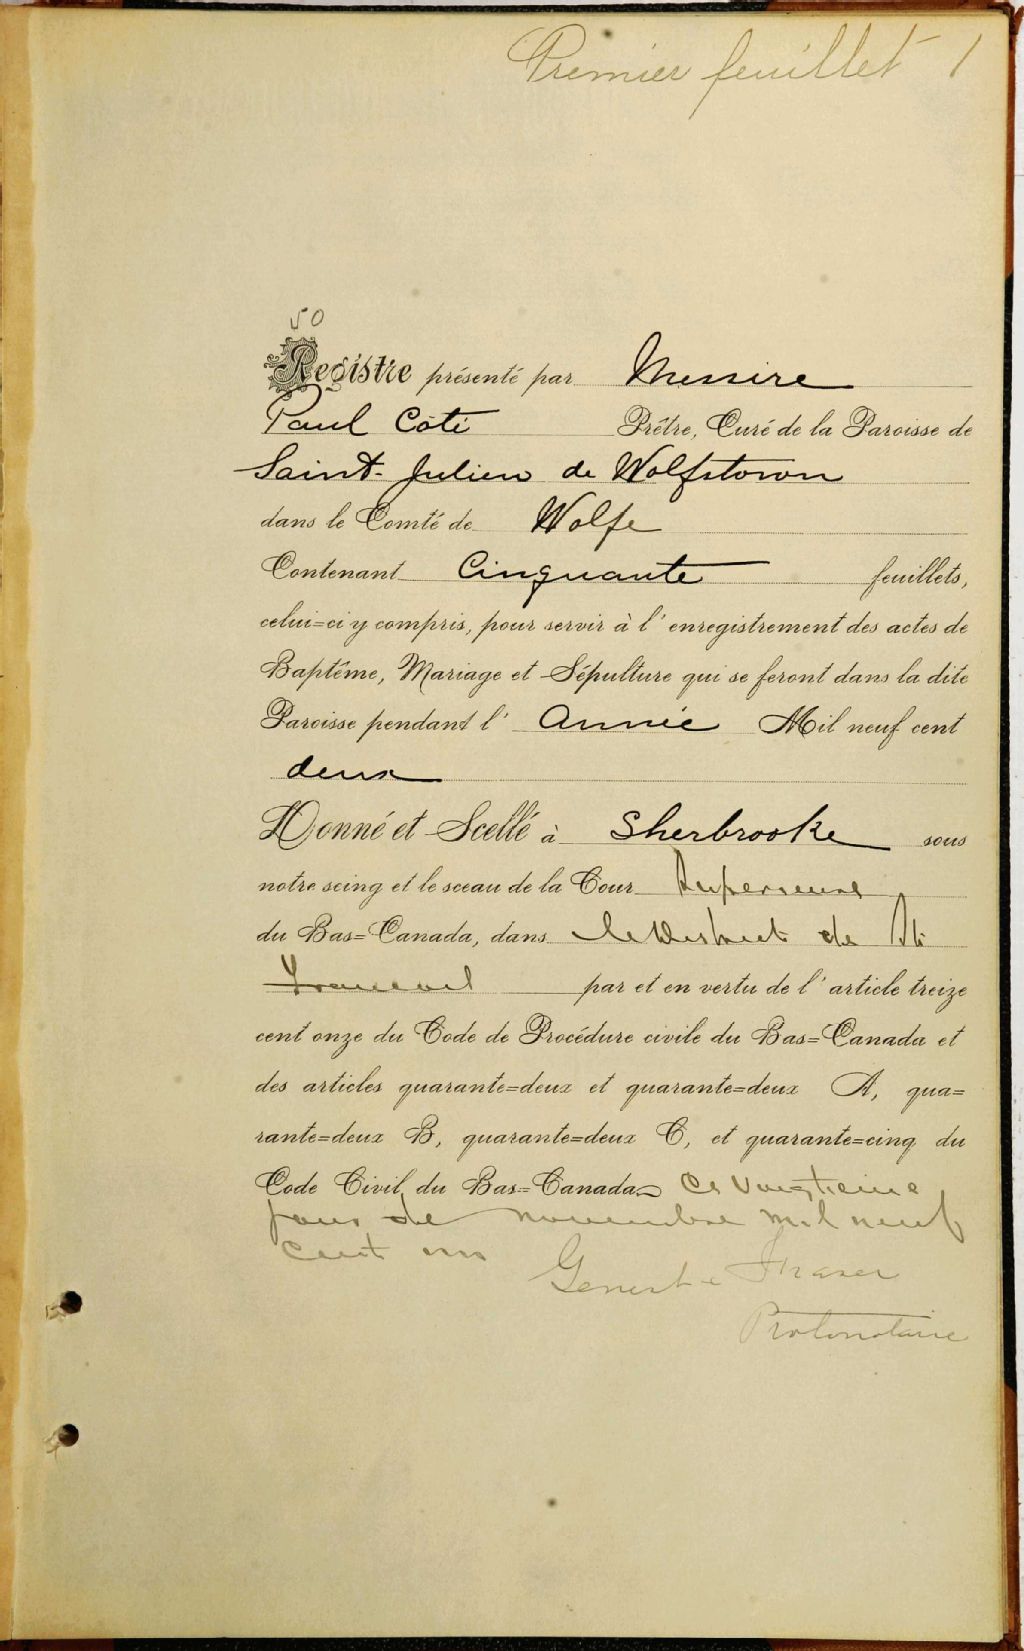 Premier feuillet 1
50
Registre présenté par Messire
Paul Coté Prêtre, Curé de la Paroisse de
Saint-Julien de Wolfstown
dans le Comté de Wolfe
Contenant Cinquante feuillets,
celui=ci y compris, pour servir à l'enregistrement des actes de
Baptême, Mariage et Sépulture qui se feront dans la dite
Paroisse pendant l' Année Mil neuf cent
deux
Donné et Scellé à Sherbrooke sous
notre seing et le sceau de la Cour Superieure
du Bas=Canada, dans le District de St
Francois par et en vertu de l'article treize
cent onze du Code de Procédure civile du Bas=Canada et
des articles quarante=deux et quarante=deux A, qua=
rante=deux B, quarante=deux C, et quarante=cinq du
Code Civil du Bas=Canada Ce
jour de novembre mil neuf
cent un Genest & Fraser
Protonotaire